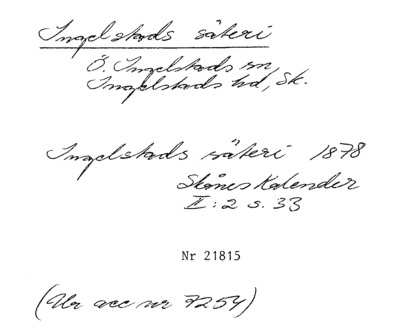 Ingelstads säteri
Ö. Ingelstads sn,
Ingelstads hd, Sk.
Ingelstads säteri 1878
Skånes Kalender
II:2 s. 33
Nr 21815
(Ur acc nr 7254)